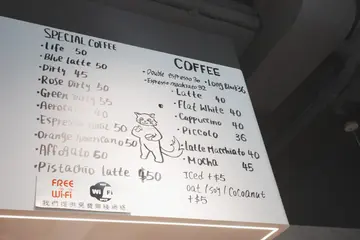 SPECIAL COFFEE
• Life 50
• Blue latte 50
• Dirty 45
• Rose Dirty 50
• Green Dirty 55
• Aeroca 40
• Espresso 50
• Orange Americano 50
• Affogato 50
• Pistachio latte $50
COFFEE
• Double espresso
• Long Black 36
• Espresso macchiato 32
• Latte 40
• Flat White 40
• Cappuccino 40
• Piccolo 36
• Latte Macchiato 40
• Mocha 45
Iced +$5
oat / soy / Cocoanut
+$5
FREE
Wi-Fi
Wi Fi
我們提供免費無線網絡